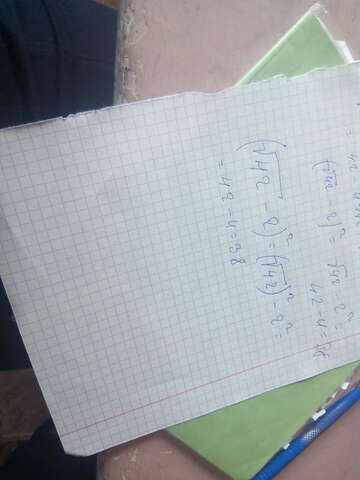 (√42 - 2)² = √42² - 2²
42 - 4 = 38
(√42 - 2)² = (√42)² - 2² =
= 42 - 4 = 38